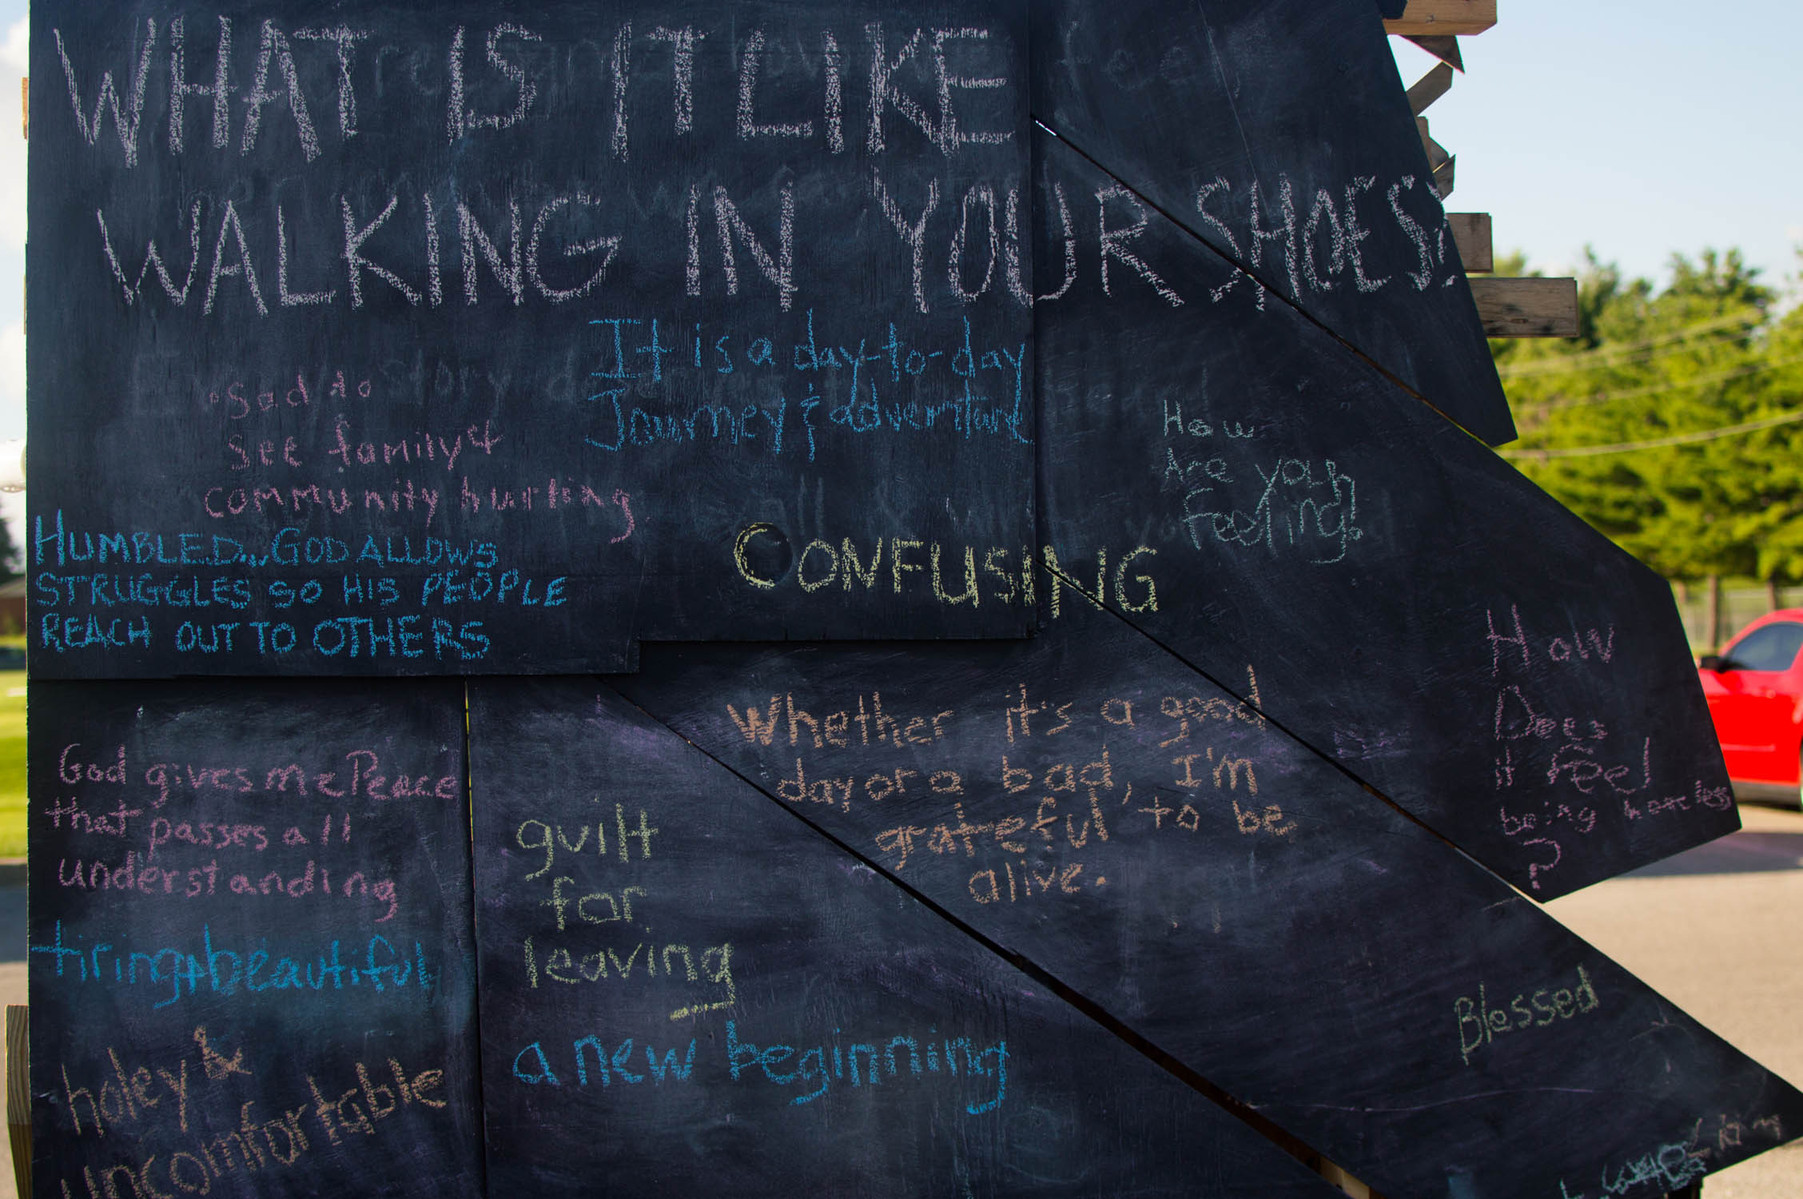 WHAT IS IT LIKE
WALKING IN YOUR SHOES?
It is a day-to-day
Journey & adventure
"Sad to
see family &
community hurting
How
Are you
Feeling?
HUMBLED...GOD ALLOWS
STRUGGLES SO HIS PEOPLE
REACH OUT TO OTHERS
CONFUSING
How
Does
it feel
being
?
Whether it's a good
day or a bad, I'm
grateful to be
alive.
God gives me Peace
that passes all
understanding
guilt
for
leaving
tiring + beautiful
a new beginning
Blessed
holey &
uncomfortable